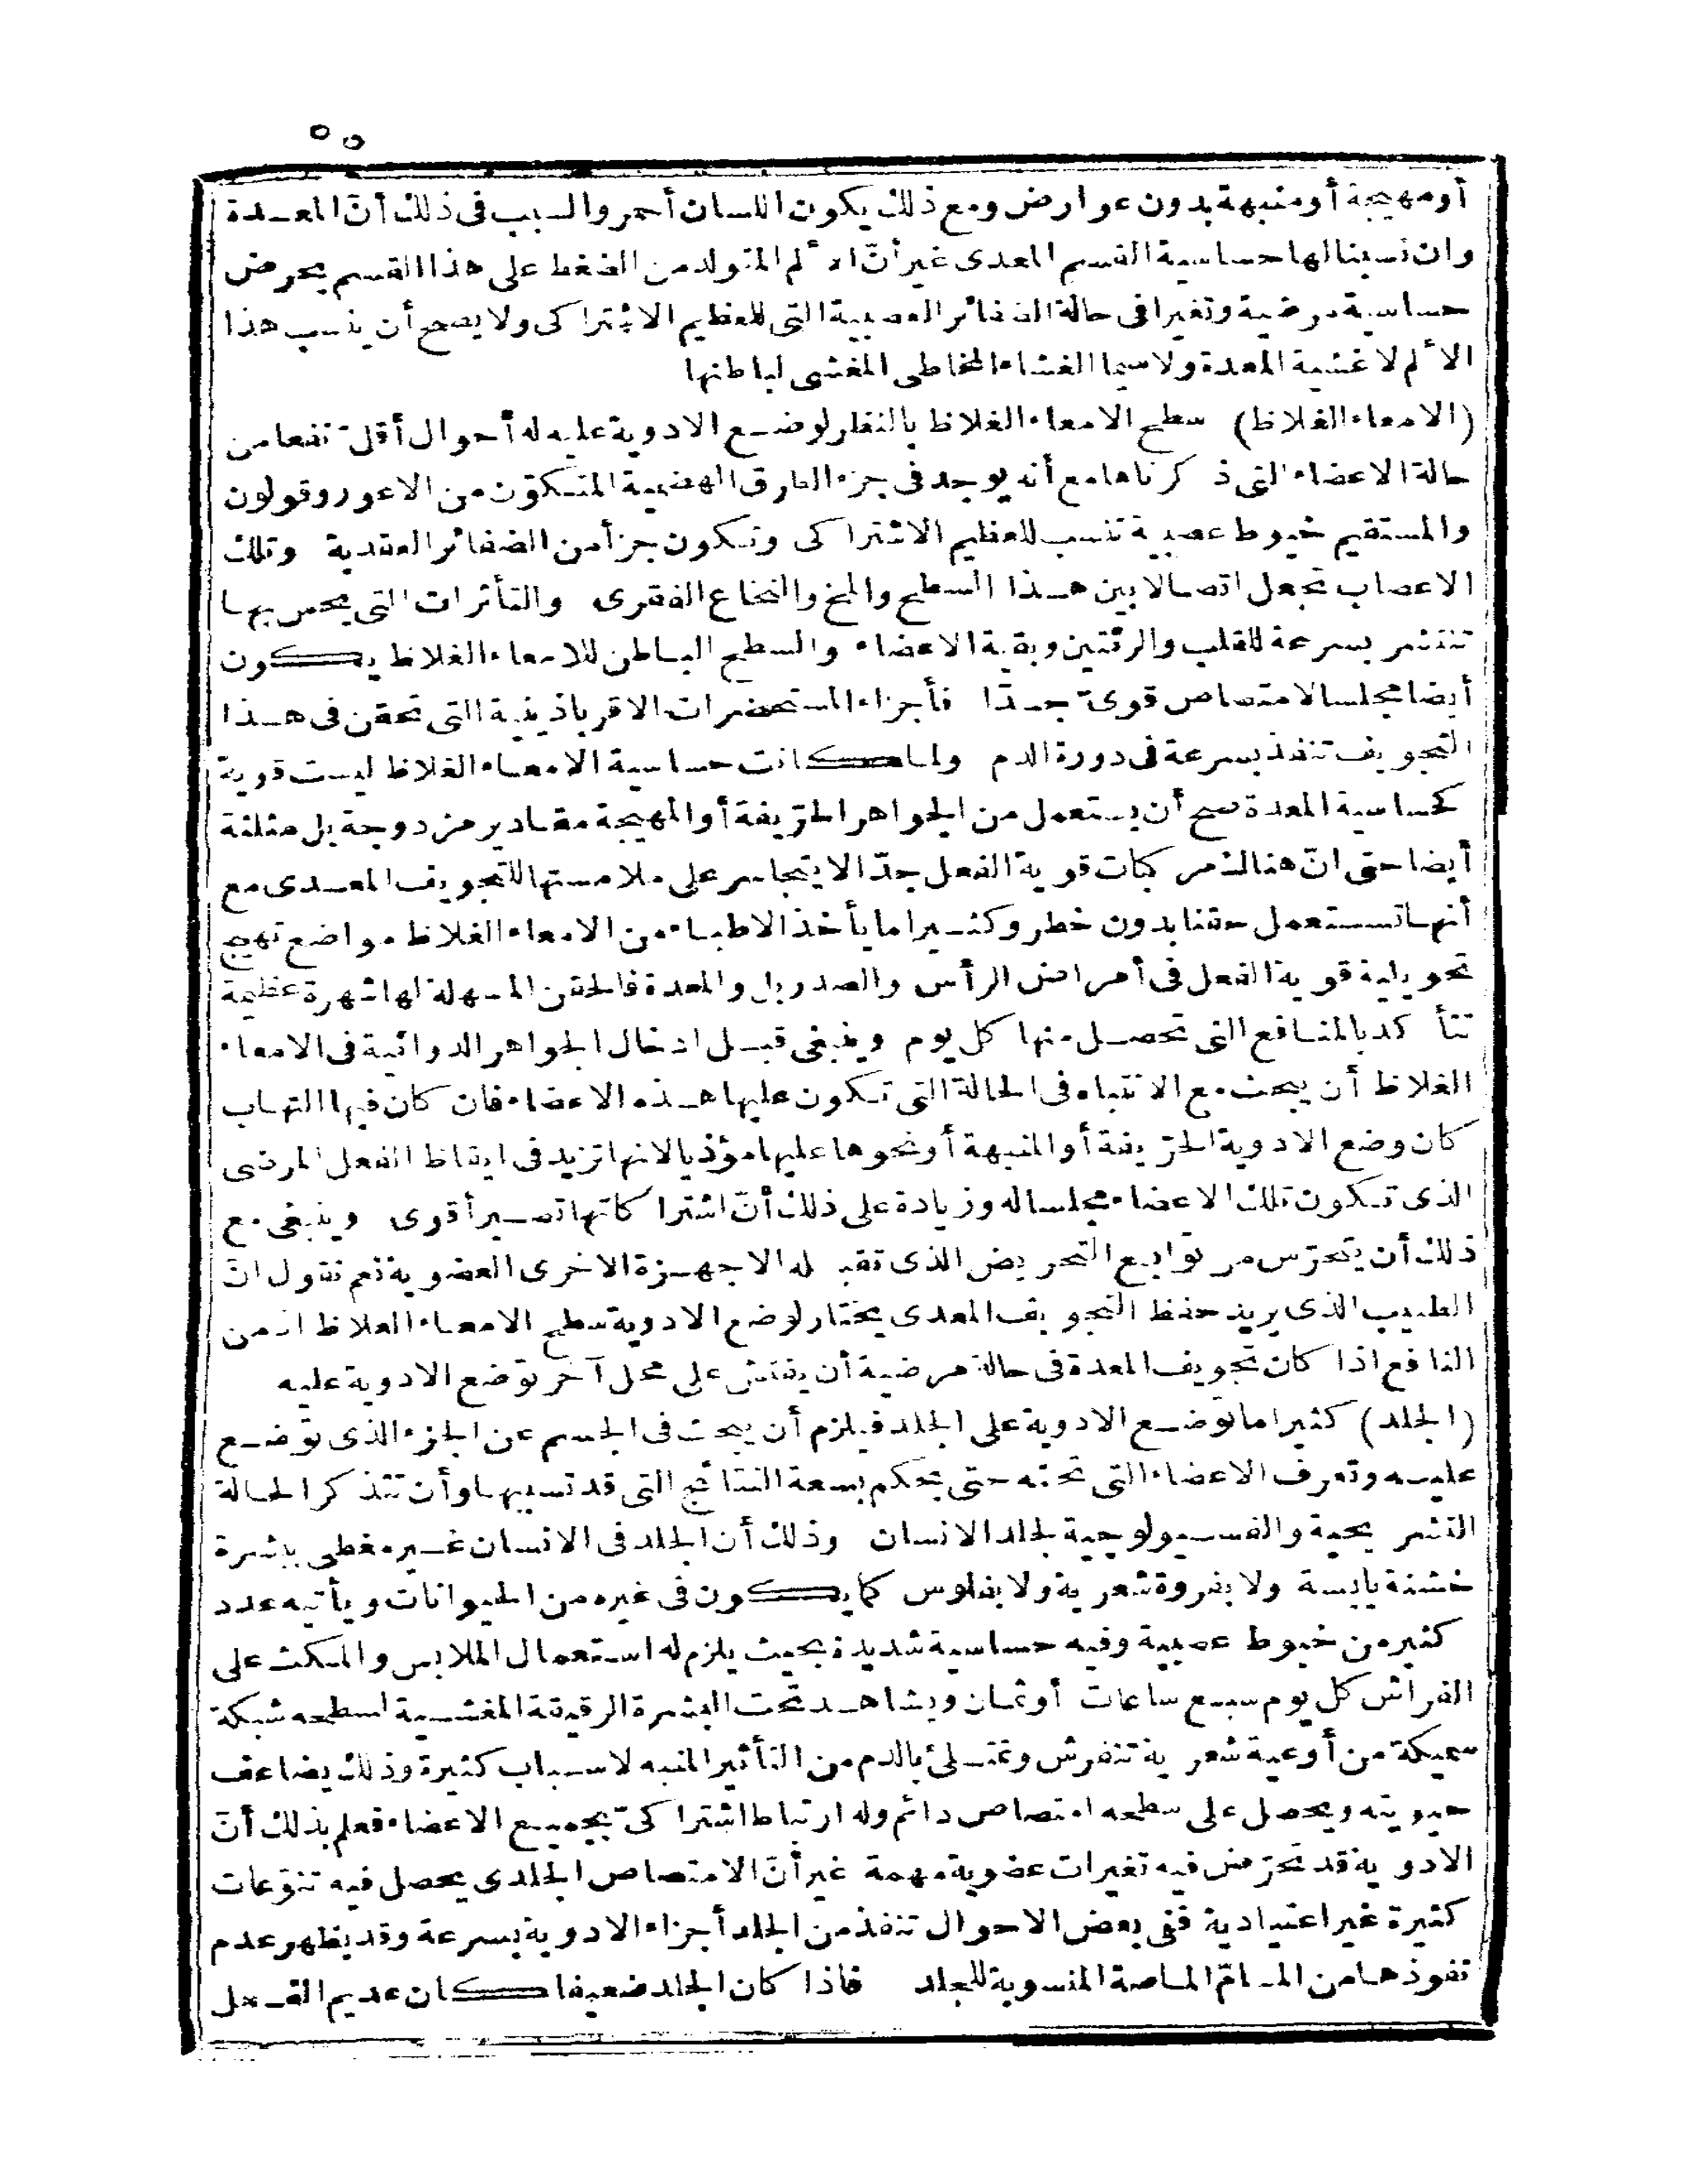 ٥٥
أومهيجة أومنبهة بدون عوارض ومع ذلك يكون اللسان أحمر والسبب فى ذلك أنّ المعدة
وان نسبنا لها حساسية القسم المعدى غير أنّ الألم المتولد من الضغط على هذا القسم يحرض
حساسية مرضية وتغيرا فى حالة الضفائر العصبية التى للعظيم الاشتراكى ولا يصح أن ينسب هذا
الألم لاغشية المعدة ولاسيما الغشاء المخاطى المغشى لباطنها
(الامعاء الغلاظ) سطح الامعاء الغلاظ بالنظر لوضع الادوية عليه له أحوال أقل نفعا من
حالة الاعضاء التى ذكرناها مع أنه يوجد فى جزء الطرق الهضمية المتكوّن من الاعور وقولون
والمستقيم خيوط عصبية تنسب للعظيم الاشتراكى وتكون جزأ من الضفائر العقدية وتلك
الاعصاب تجعل اتصالا بين هذا السطح والمخ والنخاع الفقرى والتأثرات التى يحس بها
تنتشر بسرعة للقلب والرئتين وبقية الاعضاء والسطح الباطن للامعاء الغلاظ يكون
أيضا مجلسا لامتصاص قوىّ جدّا فأجزاء المستحضرات الاقرباذينية التى تحقن فى هذا
التجويف تنفذ بسرعة فى دورة الدم ولما كانت حساسية الامعاء الغلاظ ليست قوية
كحساسية المعدة صح أن يستعمل من الجواهر الحرّيفة أوالمهيجة مقادير مزدوجة بل مثلثة
أيضا حتى انّ هنالك مركبات قوية الفعل جدّا لا يتجاسر على ملامستها للتجويف المعدى مع
أنها تستعمل حقنا بدون خطر وكثيرا ما يأخذ الاطباء من الامعاء الغلاظ مواضع تهيج
تحويلية قوية الفعل فى أمراض الرأس والصدر بل والمعدة فالحقن المسهلة لها شهرة عظيمة
تتأكد بالمنافع التى تحصل منها كل يوم وينبغى قبل ادخال الجواهر الدوائية فى الامعاء
الغلاظ أن يبحث مع الانتباه فى الحالة التى تكون عليها هذه الاعضاء فان كان فيها التهاب
كان وضع الادوية الحرّيفة أوالمنبهة أونحوها عليها مؤذيا لانها تزيد فى ايقاظ الفعل المرضى
الذى تكون تلك الاعضاء مجلسا له وزيادة على ذلك أنّ اشتراكاتها تصير أقوى وينبغى مع
ذلك أن يتحرّس من توابع التحريض الذى تقبله الاجهزة الاخرى العضوية نعم نقول انّ
الطبيب الذى يريد حفظ التجويف المعدى يختار لوضع الادوية سطح الامعاء الغلاظ اذ من
النافع اذا كان تجويف المعدة فى حالة مرضية أن يفتش على محل آخر توضع الادوية عليه
(الجلد) كثيرا ما توضع الادوية على الجلد فيلزم أن يبحث فى الجسم عن الجزء الذى توضع
عليه وتعرف الاعضاء التى تحته حتى يحكم بسعة النتائج التى قد تسببها وأن تتذكر الحالة
التشريحية والفسيولوجية لجلد الانسان وذلك أن الجلد فى الانسان غير مغطى ببشرة
خشنة يابسة ولا بفروة شعرية ولا بفلوس كما يكون فى غيره من الحيوانات ويأتيه عدد
كثير من خيوط عصبية وفيه حساسية شديدة بحيث يلزم له استعمال الملابس والمكث على
الفراش كل يوم سبع ساعات أوثمان ويشاهد تحت البشرة الرقيقة المغشية لسطحه شبكة
سميكة من أوعية شعرية تنفرش وتمتلئ بالدم من التأثير المنبه لاسباب كثيرة وذلك يضاعف
حيويته ويحصل على سطحه امتصاص دائم وله ارتباط اشتراكىّ بجميع الاعضاء فعلم بذلك أنّ
الادوية قد تحرّض فيه تغيرات عضوية مهمة غير أنّ الامتصاص الجلدى يحصل فيه تنوّعات
كثيرة غير اعتيادية ففى بعض الاحوال تنفذ من الجلد أجزاء الادوية بسرعة وقد يظهر عدم
نفوذها من المسامّ الماصة المنسوبة للجلد فاذا كان الجلد ضعيفا كان عديم الفعل